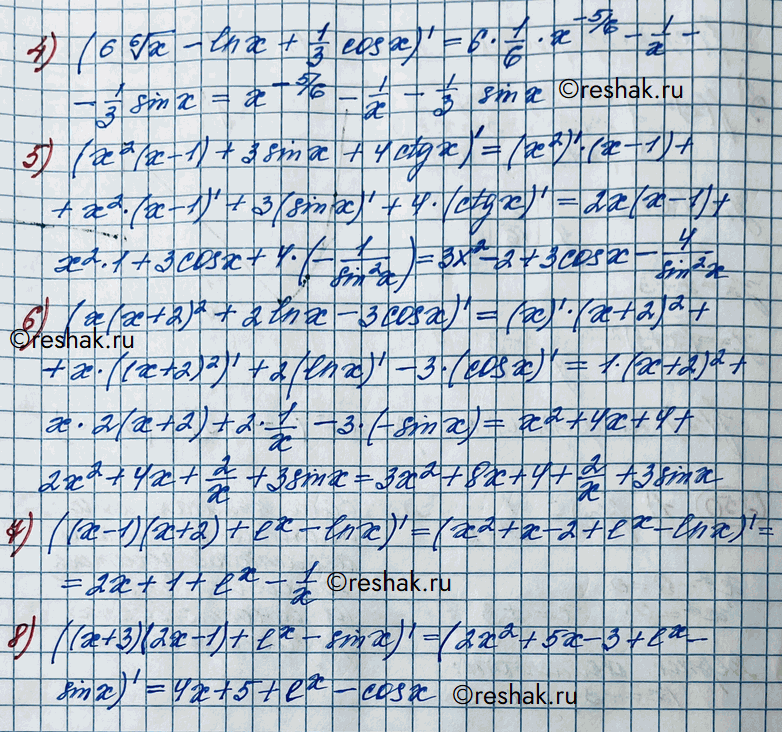 4) (6 ⁶√x - lnx + 1/3 cosx)' = 6·1/6·x^(-5/6) - 1/x -
- 1/3 sinx = x^(-5/6) - 1/x - 1/3 sinx ©reshak.ru
5) (x²(x-1) + 3sinx + 4ctgx)' = (x²)'·(x-1) +
+ x²·(x-1)' + 3(sinx)' + 4·(ctgx)' = 2x(x-1) +
x²·1 + 3cosx + 4·(-1/sin²x) = 3x² - 2 + 3cosx - 4/sin²x
6) (x(x+2)² + 2lnx - 3cosx)' = (x)'·(x+2)² +
©reshak.ru
+ x·((x+2)²)' + 2(lnx)' - 3·(cosx)' = 1·(x+2)² +
x·2(x+2) + 2·1/x - 3·(-sinx) = x² + 4x + 4 +
2x² + 4x + 2/x + 3sinx = 3x² + 8x + 4 + 2/x + 3sinx
7) ((x-1)(x+2) + e^x - lnx)' = (x² + x - 2 + e^x - lnx)' =
= 2x + 1 + e^x - 1/x ©reshak.ru
8) ((x+3)(2x-1) + e^x - sinx)' = (2x² + 5x - 3 + e^x -
sinx)' = 4x + 5 + e^x - cosx ©reshak.ru